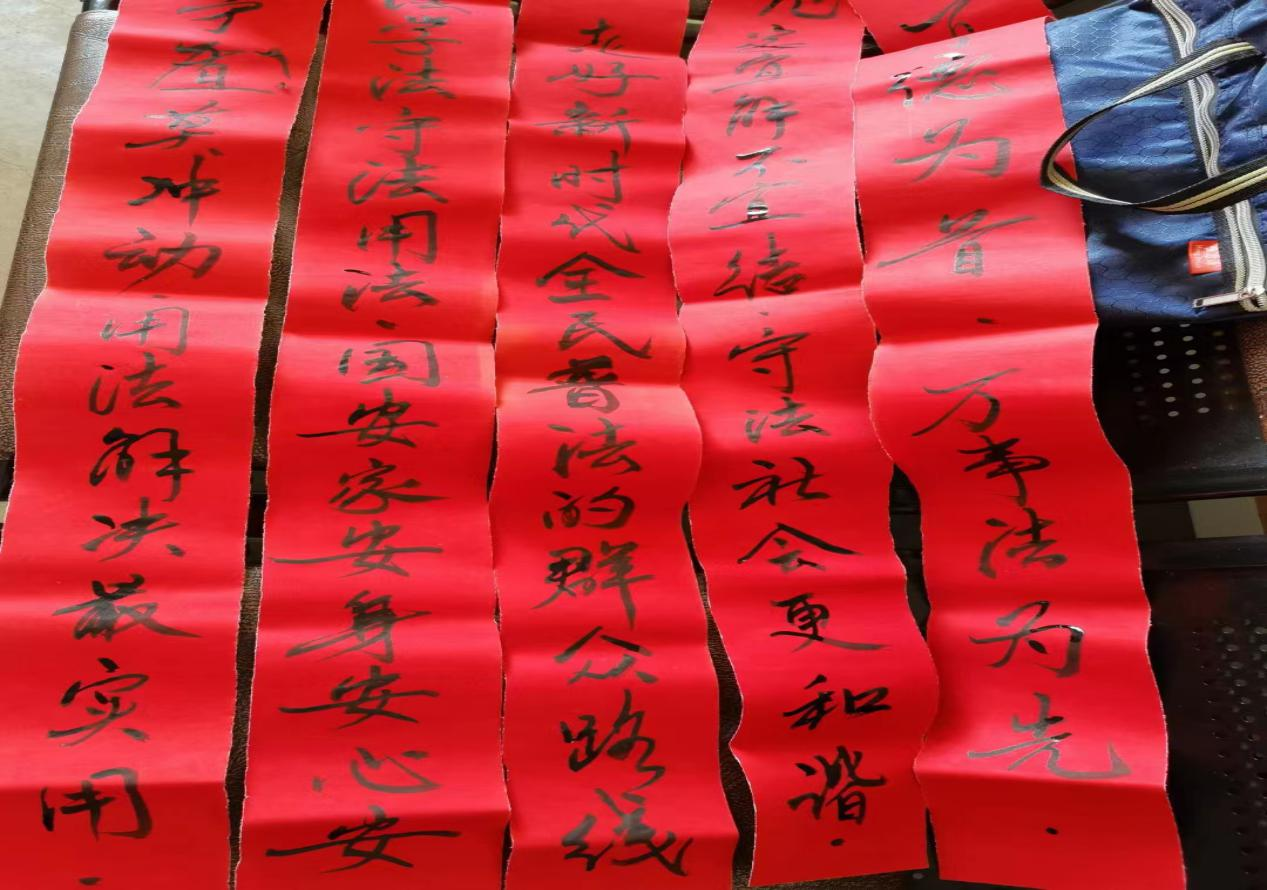 德为首.万事法为先.
宜解不宜结.守法社会更和谐.
走好新时代全民普法的群众路线
法学法守法用法.国安家安身安心安
莫冲动用法解决最实用.